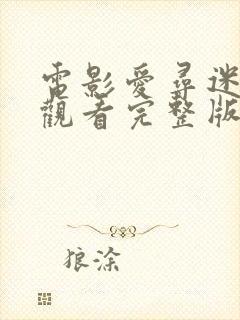 電影愛尋迷
觀看完整版
狼涂